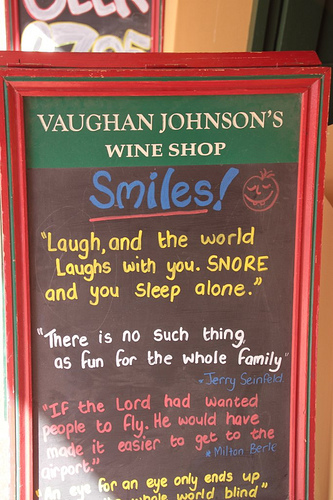 VAUGHAN JOHNSON'S
WINE SHOP
Smiles!
"Laugh, and the world
Laughs with you. SNORE
and you sleep alone."
"There is no such thing
as fun for the whole family"
• Jerry Seinfeld
"IF the Lord had wanted
people to fly. He would have
made it easier to get to the
airport."
* Milton Berle
"An eye for an eye only ends up
whole world blind"